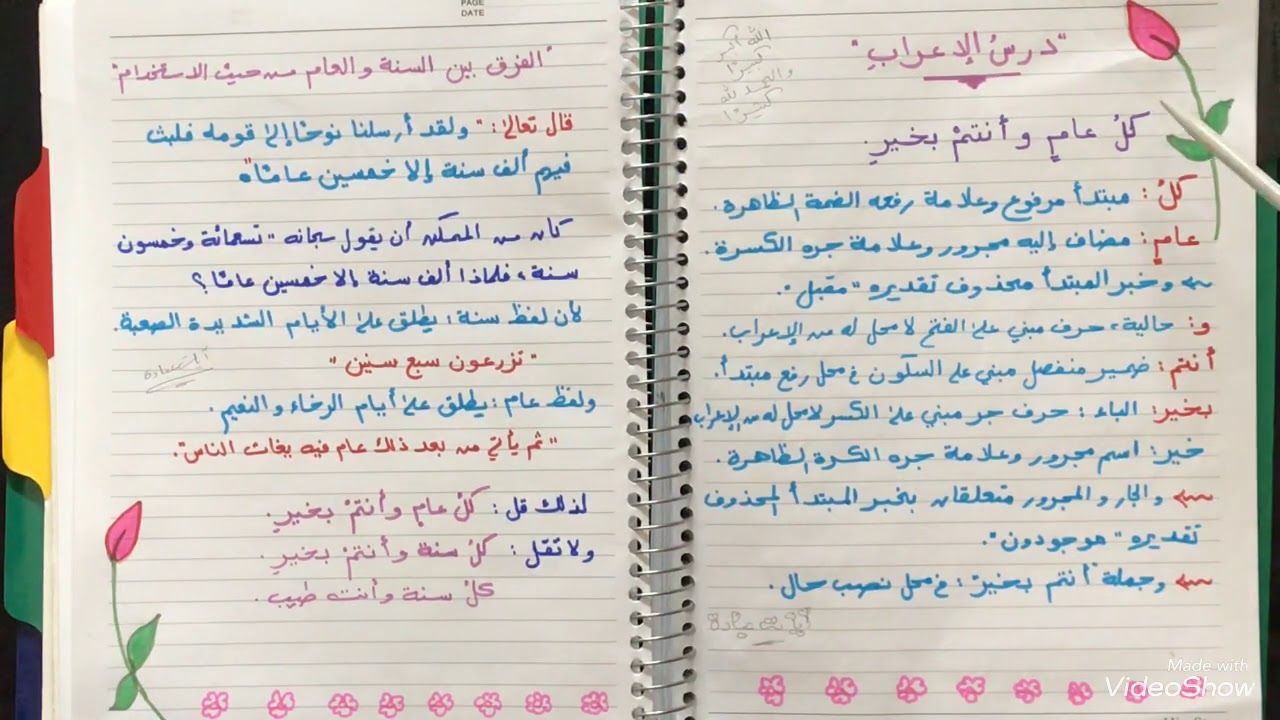 "درسُ الإعرابِ"
الله أكبر
كبيرًا
والحمد لله
كثيرًا
كلُ عامٍ وأنتمْ بخيرٍ.
كلُ: مبتدأ مرفوع وعلامة رفعه الضمة الظاهرة.
عامٍ: مضاف إليه مجرور وعلامة جره الكسرة.
وخبر المبتدأ محذوف تقديره "مقبل".
و: حالية، حرف مبني على الفتح لا محل له من الإعراب.
أنتم: ضمير منفصل مبني على السكون في محل رفع مبتدأ.
بخير: الباء: حرف جر مبني على الكسر لا محل له من الإعراب
خير: اسم مجرور وعلامة جره الكسرة الظاهرة.
والجار والمجرور متعلقان بخبر المبتدأ المحذوف
تقديره "موجودون".
وجملة "أنتم بخير": في محل نصب حال.
PAGE
DATE
"الفرق بين السنة والعام من حيث الاستخدام"
قال تعالى: "ولقد أرسلنا نوحًا إلى قومه فلبث
فيهم ألف سنة إلا خمسين عامًا"
كان من الممكن أن يقول سبحانه "تسعمائة وخمسون
سنة، فلماذا ألف سنة إلا خمسين عامًا؟
لأن لفظ سنة: يطلق على الأيام الشديدة الصعبة.
"تزرعون سبع سنين"
ولفظ عام: يطلق على أيام الرخاء والنعيم.
"ثم يأتي من بعد ذلك عام فيه يغاث الناس".
لذلك قل: كلُ عامٍ وأنتمْ بخيرٍ.
ولا تقل: كلُ سنة وأنتمْ بخيرٍ.
كلُ سنة وأنت طيب.
Made with
VideoShow